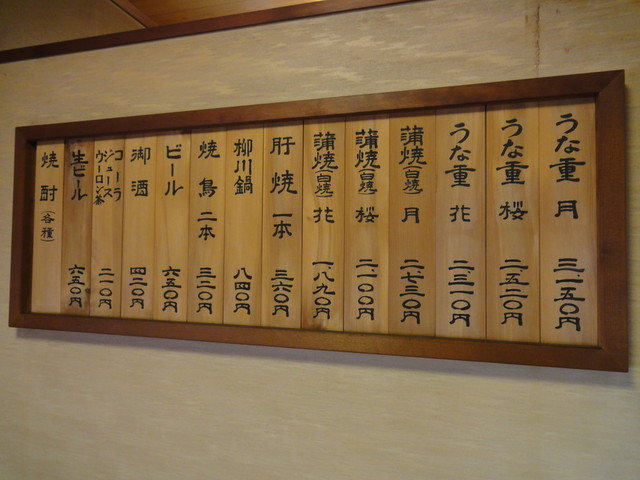 うな重 月 三、一五〇円
うな重 桜 二、五二〇円
うな重 花 二、三一〇円
蒲焼(白焼) 月 二、七三〇円
蒲焼(白焼) 桜 二、一〇〇円
蒲焼(白焼) 花 一、八九〇円
肝焼 一本 三六〇円
柳川鍋 八四〇円
焼鳥 二本 三二〇円
ビール 六五〇円
御酒 四二〇円
コーラ
ジュース
ウーロン茶 二一〇円
生ビール 六五〇円
焼酎(各種)